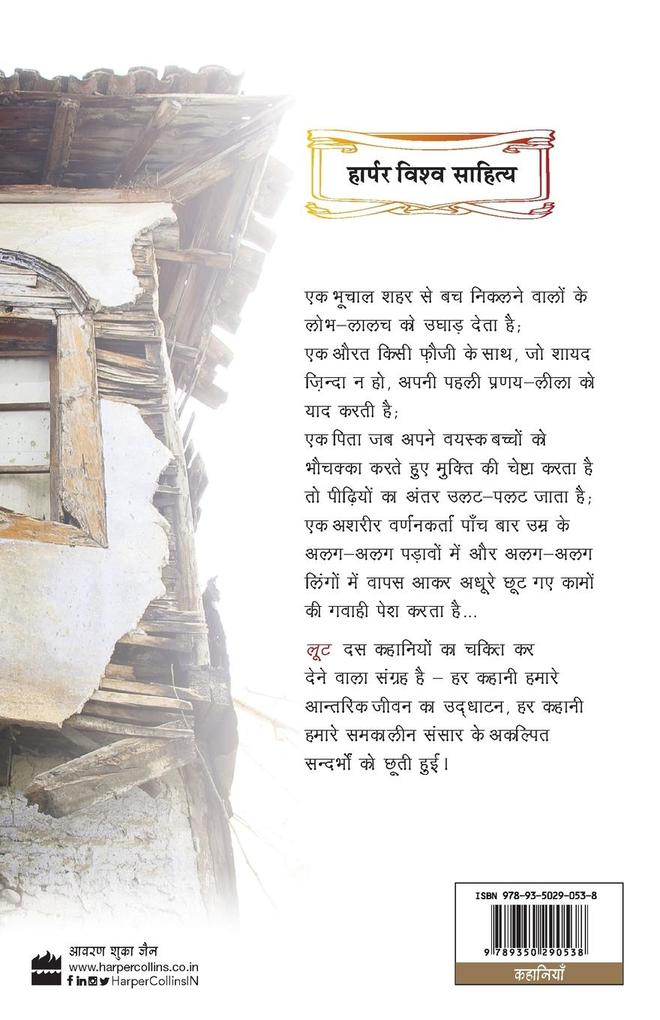 हार्पर विश्व साहित्य
एक भूचाल शहर से बच निकलने वालों के
लोभ–लालच को उघाड़ देता है;
एक औरत किसी फ़ौजी के साथ, जो शायद
ज़िन्दा न हो, अपनी पहली प्रणय–लीला को
याद करती है;
एक पिता जब अपने वयस्क बच्चों को
भौचक्का करते हुए मुक्ति की चेष्टा करता है
तो पीढ़ियों का अंतर उलट–पलट जाता है;
एक अशरीर वर्णनकर्ता पाँच बार उम्र के
अलग–अलग पड़ावों में और अलग–अलग
लिंगों में वापस आकर अधूरे छूट गए कामों
की गवाही पेश करता है...
लूट दस कहानियों का चकित कर
देने वाला संग्रह है – हर कहानी हमारे
आन्तरिक जीवन का उद्घाटन, हर कहानी
हमारे समकालीन संसार के अकल्पित
सन्दर्भों को छूती हुई।
ISBN 978-93-5029-053-8
9 789350 290538
कहानियाँ
आवरण शुका जैन
www.harpercollins.co.in
HarperCollinsIN